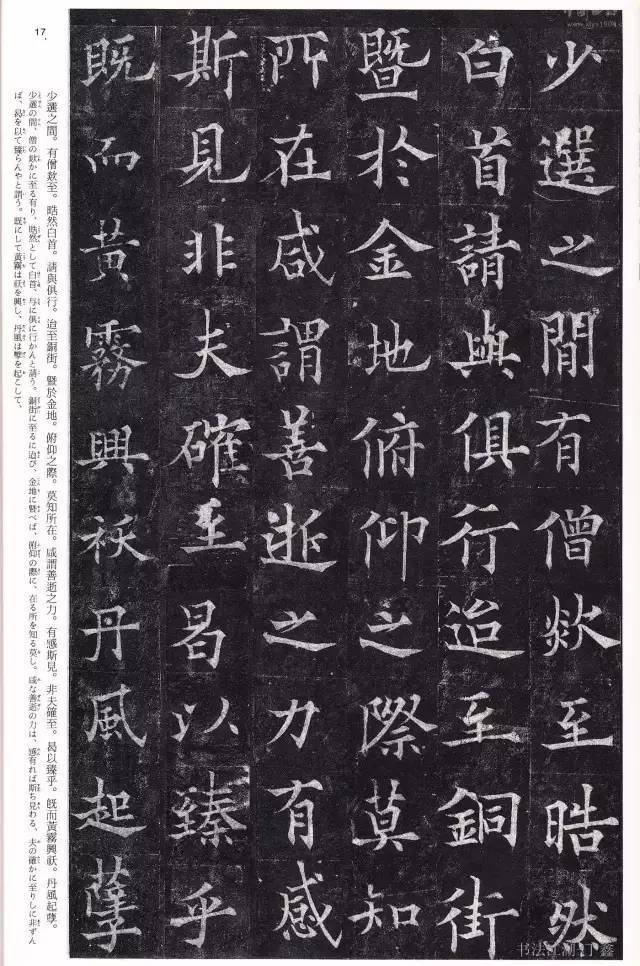 少選之間有僧欻至晧然
白首請與俱行迨至銅街
曁於金地俯仰之際莫知
所在咸謂善逝之力有感
斯見非夫確至曷以臻乎
既而黃霧興祅丹風起孽
少選之間。有僧欻至。晧然白首。請與俱行。迨至銅街。曁於金地。俯仰之際。莫知所在。咸謂善逝之力。有感斯見。非夫確至。曷以臻乎。既而黃霧興祅。丹風起孽。
少選の間、僧の欻かに至る有り、晧然として白首、与に俱に行かんと請う。銅街に至るに迨び、金地に曁べば、俯仰の際に、在る所を知る莫し。咸な善逝の力は、感有れば斯ち見わる、夫の確かに至りしに非ずん
ば、曷を以て臻らんやと謂う。既にして黃霧は祅を興し、丹風は孽を起こして、
17
书法江湖-丁鑫